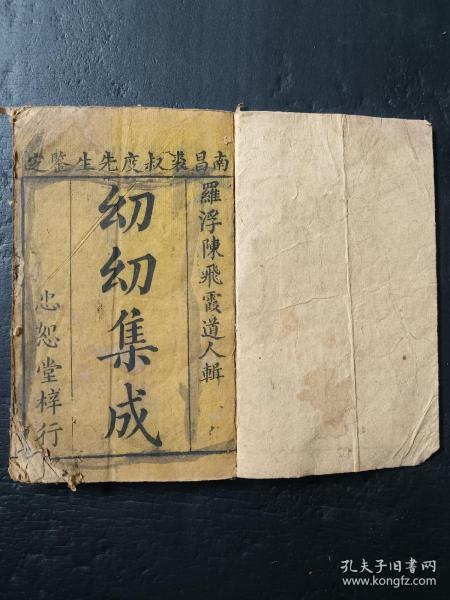 南昌裘叔度先生鑒定
羅浮陳飛霞道人輯
幼幼集成
忠恕堂梓行
孔夫子旧书网
www.kongfz.com